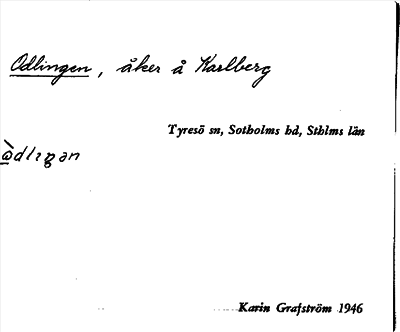 Odlingen, åker å Karlberg
Tyresö sn, Sotholms hd, Sthlms län
òdlıŋan
Karin Grafström 1946